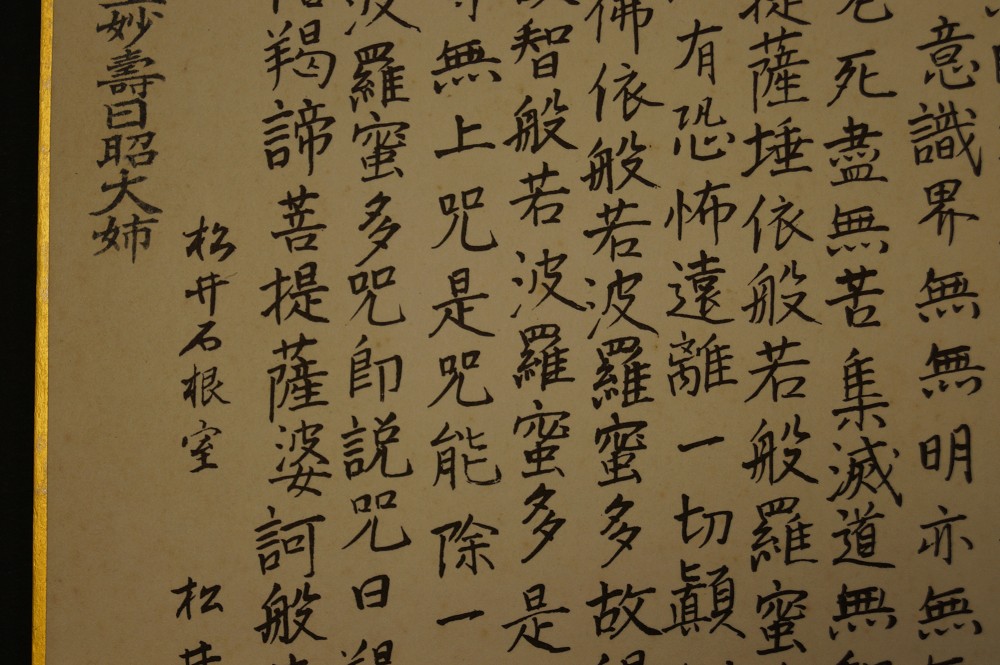 意識界無無明亦無
死盡無苦集滅道無
提薩埵依般若般羅蜜
有恐怖遠離一切顛
佛依般若波羅蜜多故
智般若波羅蜜多是
無上呪是呪能除一
波羅蜜多呪即説呪曰
羯諦菩提薩婆訶般
松井石根室 松井
妙壽日昭大姉